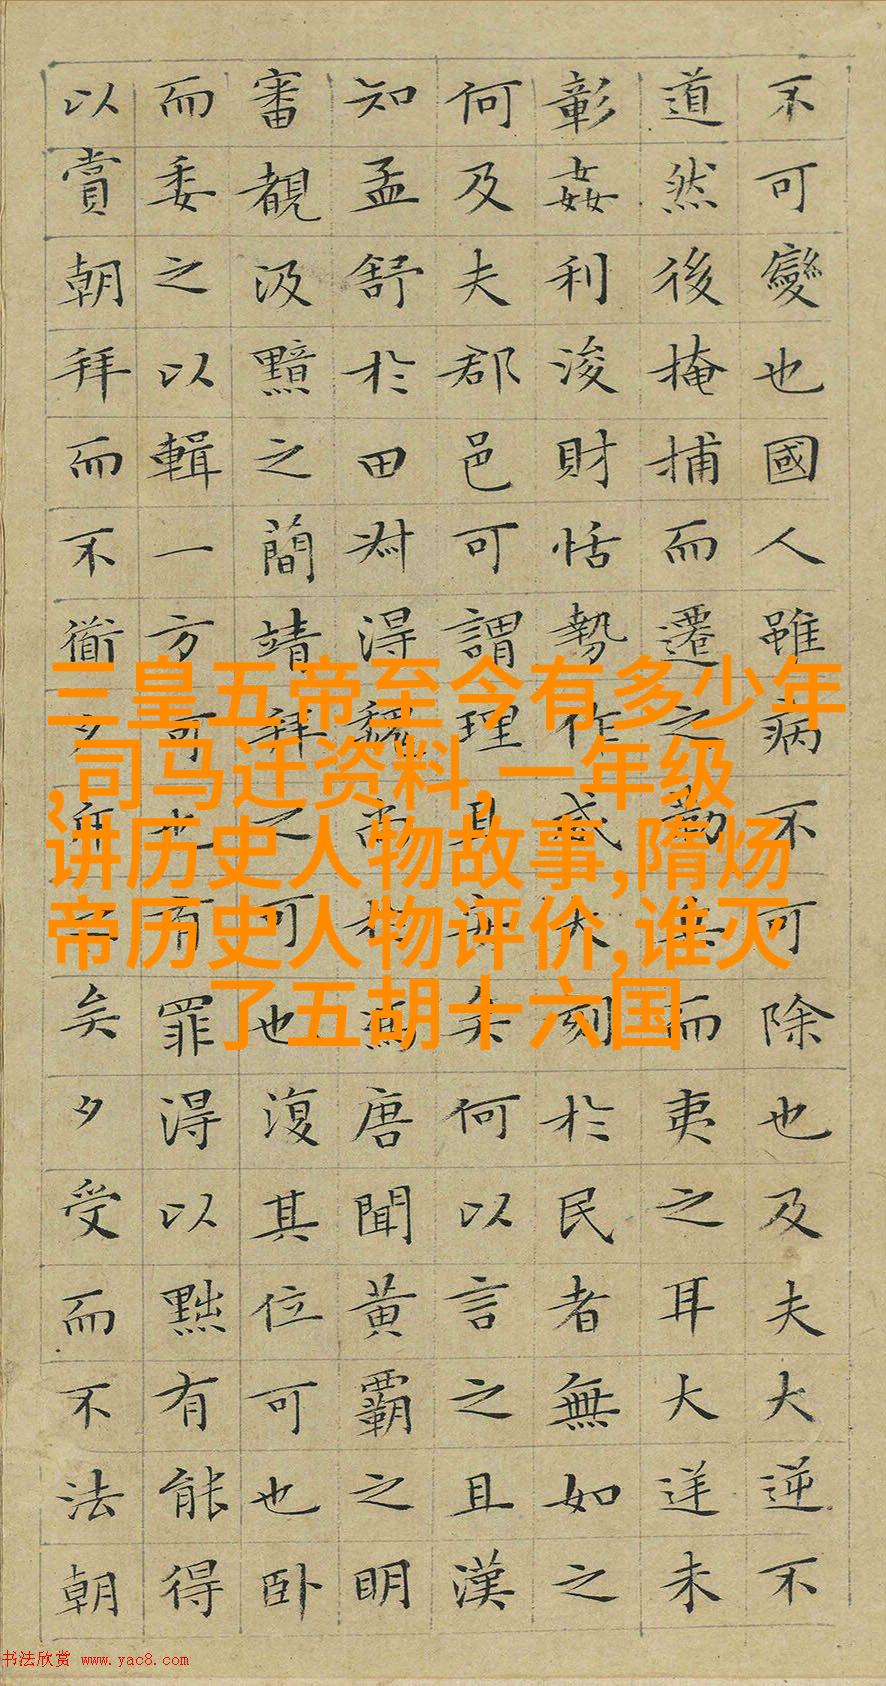 不可變也國人雖病不可除也及夫大逆不
道然後掩捕而遷之勒兵而夷之耳大逆未
彰姦利浚財怙勢作威大刻於民者無如之
何及夫郡邑可謂理且安矣何以言之且漢
知孟舒於田叔得魏尚於馮唐聞黃霸之明
審覩汲黯之簡靖拜之可也復其位可也臥
而委之以輯一方可也有罪得以黜有能得
以賞朝拜而不衜夕斥之矣夕受而不法朝
三皇五帝至今有多少年
,司马迁资料,一年级
讲历史人物故事,隋炀
帝历史人物评价,谁灭
了五胡十六国
书法欣赏 www.yac8.com